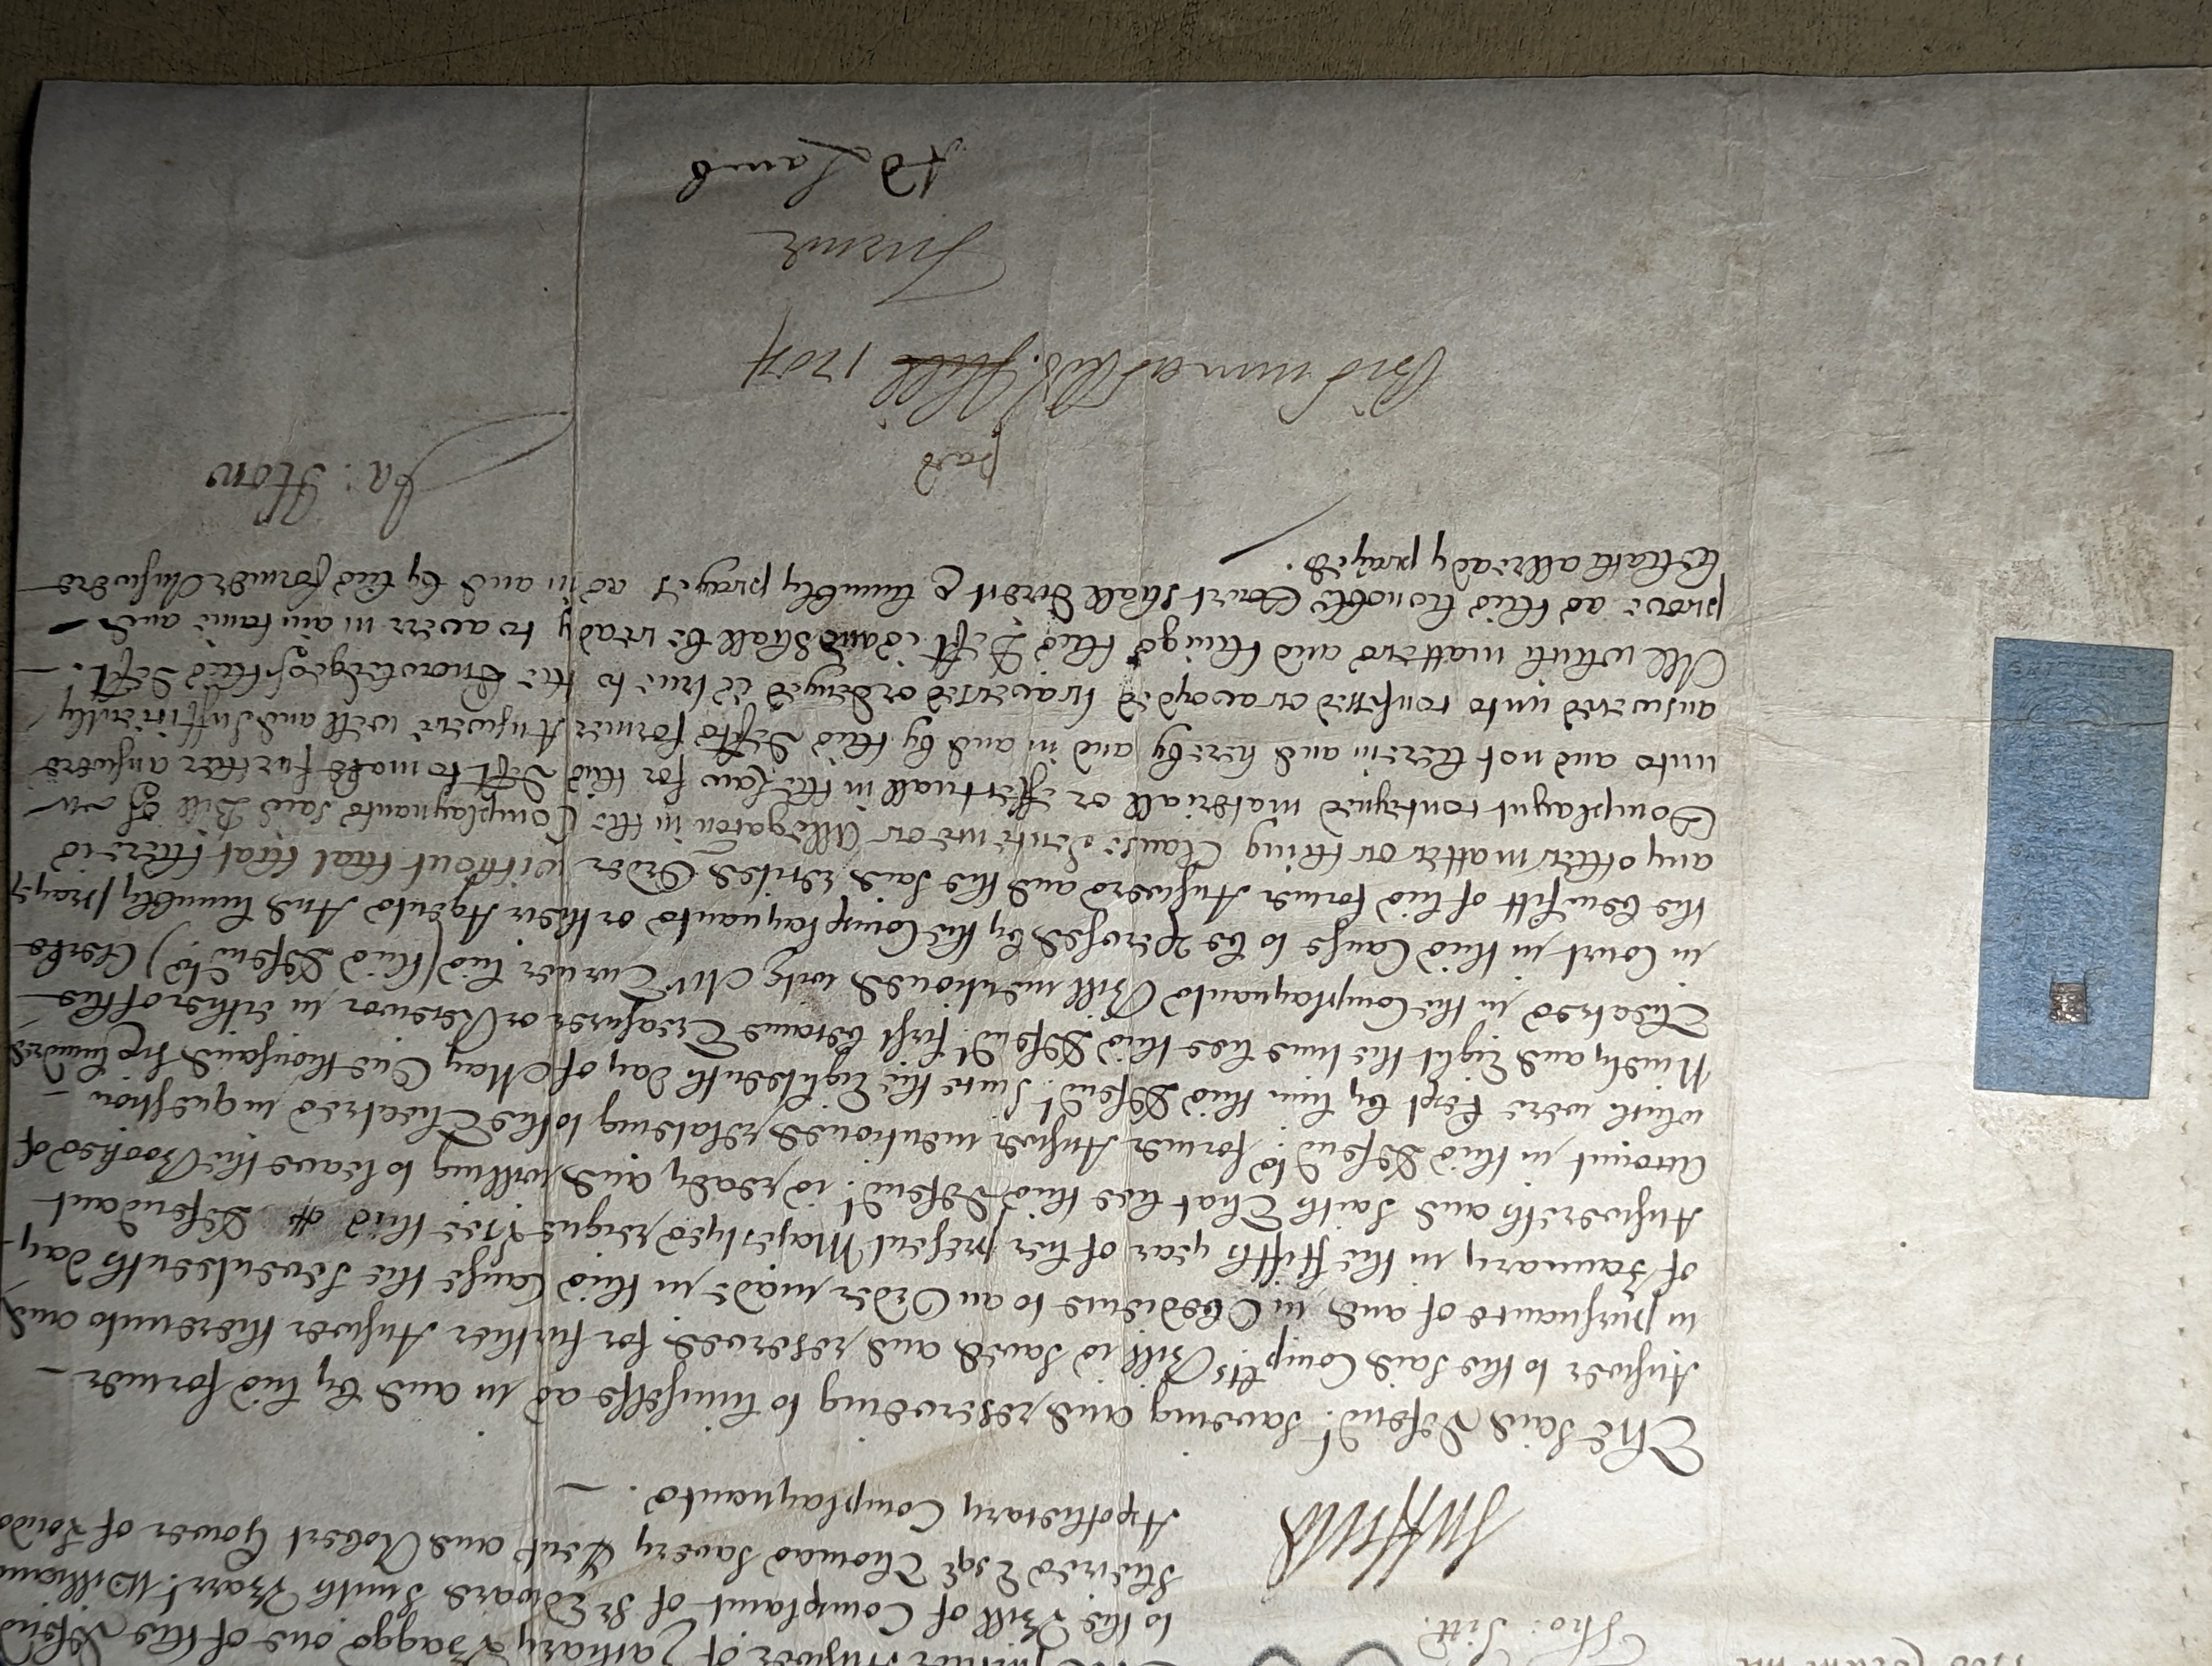 The further Answer of Zachary Baggs one of the Defend
to the Bill of Complaint of Sr Edward Smith Bart. William
Shiers Esqr Thomas Savery Gent and Robert Gower of Londo
Apothecary Complaynants. —
Tho: Pitt
The said Defendt. saveing and reserveing to himselfe as in and by his former —
Answer to the said Complts Bill is saved and reserved for further Answer thereunto and
in pursuance of and in Obedience to an Order made in this Cause the Seventeenth day
of January in the ffifth year of her present Majestyes reigne Hee this Defendant
Answereth and saith That hee this Defendt. is ready and willing to leave the Bookes of
Account in this Defendts. former Answer mentioned relateing to the Theatres in question —
which were kept by him this Defendt. since the Eighteenth day of May One thousand six hundred
Ninety and Eight the time hee this Defendt. first became Treasurer or Receivor in either of the
Theatres in the Complaynants Bill mentioned with Mr Turner his (this Defendts) Clerke
in Court in this Cause to be Perused by the Complaynants or their Agents And humbly prayes
the benefitt of his former Answers and the said recited Order without that that there is
any other matter or thing Clause sentence or Allegacon in the Complaynants said Bill of
Complaynt conteyned materiall or effectuall in the Law for this Deft to make further answere
unto and not therein and hereby and in and by this Defts former Answere well and sufficiently
answered unto confessed or avoyded traversed or denyed is true to the knowledge of this Deft. —
All which matters and things this Deft is and shall be ready to averr maintaine and
prove as this honoble Court shall direct & humbly prayes as in and by his former Answers
hee hath allready prayed.
Ja: How
pad
1707
Turner
Lamb